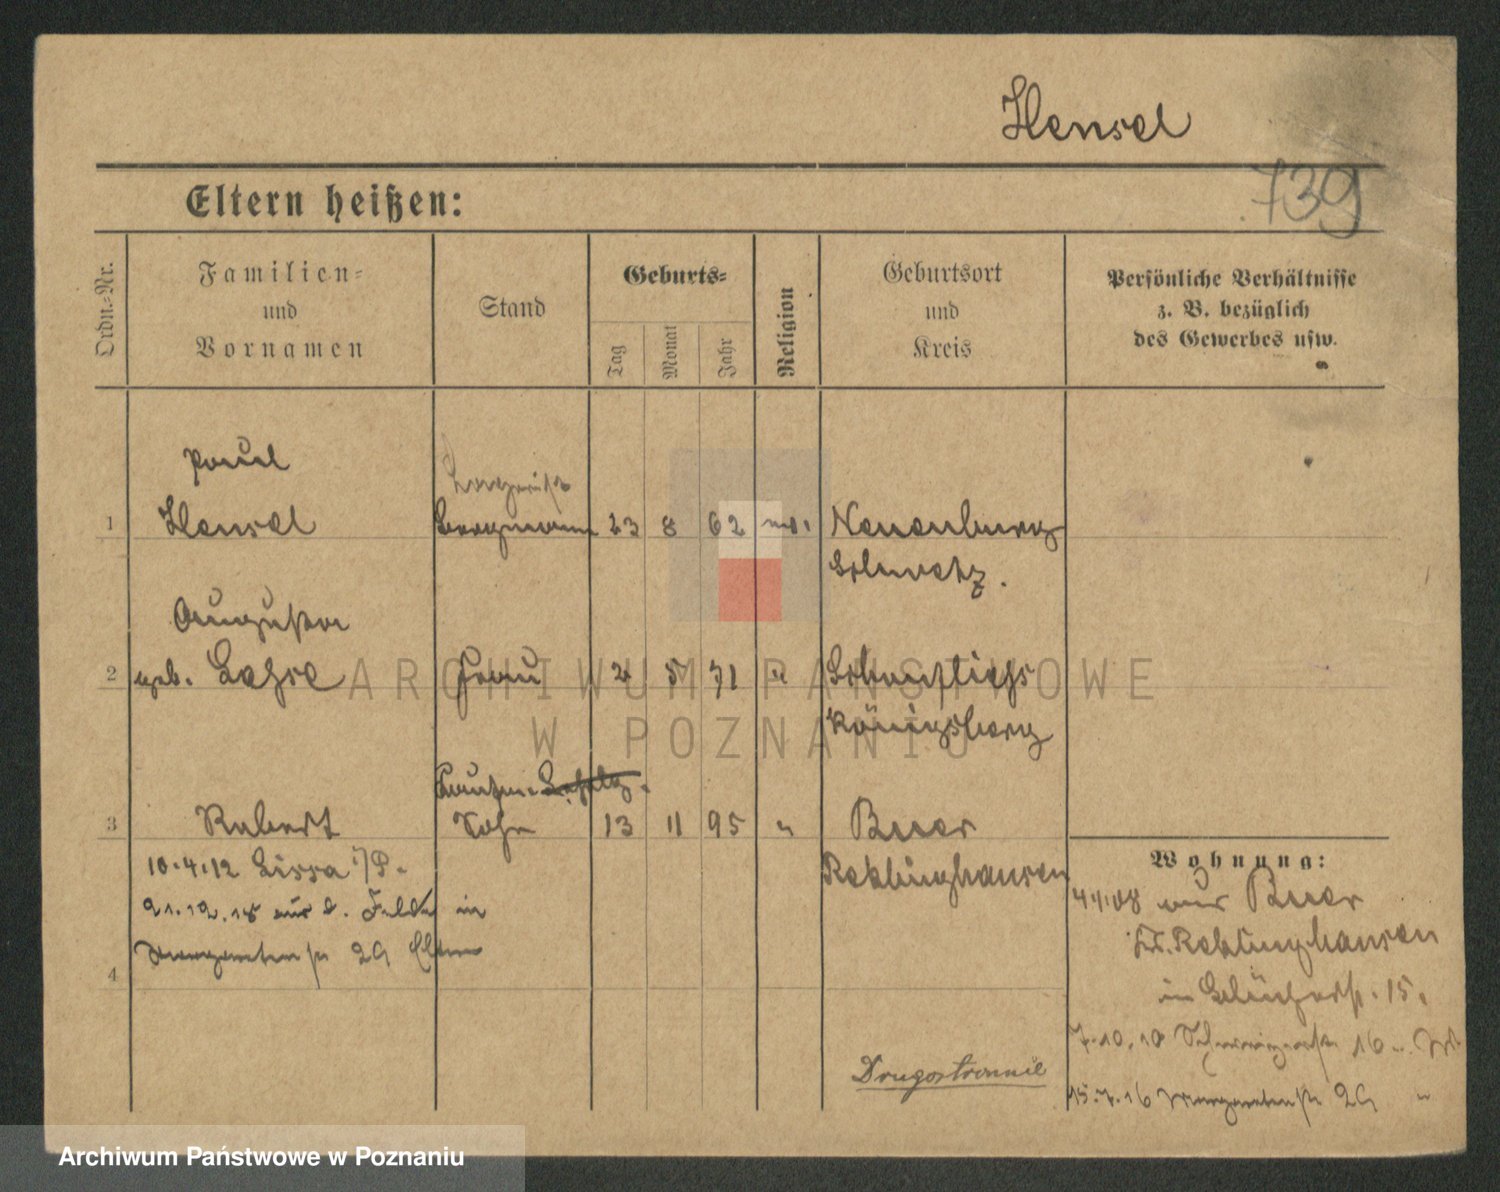 Hensel
739
Eltern heißen:
Ordn.-Nr.
Familien-
und
Vornamen
Stand
Geburts-
Tag
Monat
Jahr
Religion
Geburtsort
und
Kreis
Persönliche Verhältnisse
z. B. bezüglich
des Gewerbes usw.
Paul
1 Hensel Bergmann 23 8 62 Neuenburg
Schwetz.
Auguste
2 geb. Frau 2 5 71 "
Königsberg
3 Robert Sohn 13 11 95 " Buer
Recklinghausen
10.4.12 Lissa i/P.
21.12.18 aus d. Felde in
Margaretenstr 29 Eltern
4
Wohnung:
aus Buer
Kr. Recklinghausen
in Blücherstr. 15.
7.10.10 16
15.7.16 Margaretenstr 29 "
Drugostronnie
ARCHIWUM PAŃSTWOWE
W POZNANIU
Archiwum Państwowe w Poznaniu